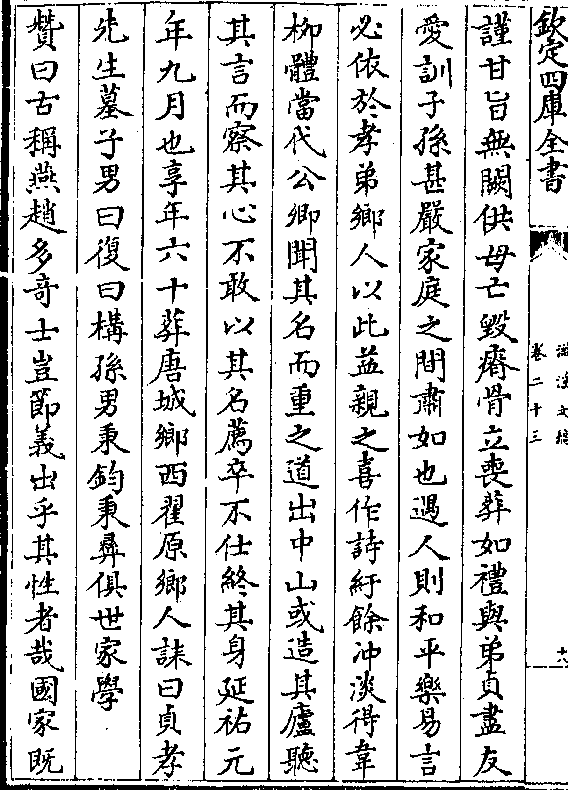 欽定四庫全書
滋溪文稿
卷二十三
謹甘旨無闕供母亡毀瘠骨立喪葬如禮與弟貞盡友
愛訓子孫甚嚴家庭之間肅如也遇人則和平樂易言
必依於孝弟鄉人以此益親之喜作詩紆餘冲淡得韋
柳體當代公卿聞其名而重之道出中山或造其廬聽
其言而察其心不敢以其名薦卒不仕終其身延祐元
年九月也享年六十葬唐城鄉西翟原鄉人誄曰貞孝
先生墓子男曰復曰構孫男秉鈞秉彞俱世家學
贊曰古稱燕趙多竒士豈節義出乎其性者哉國家既